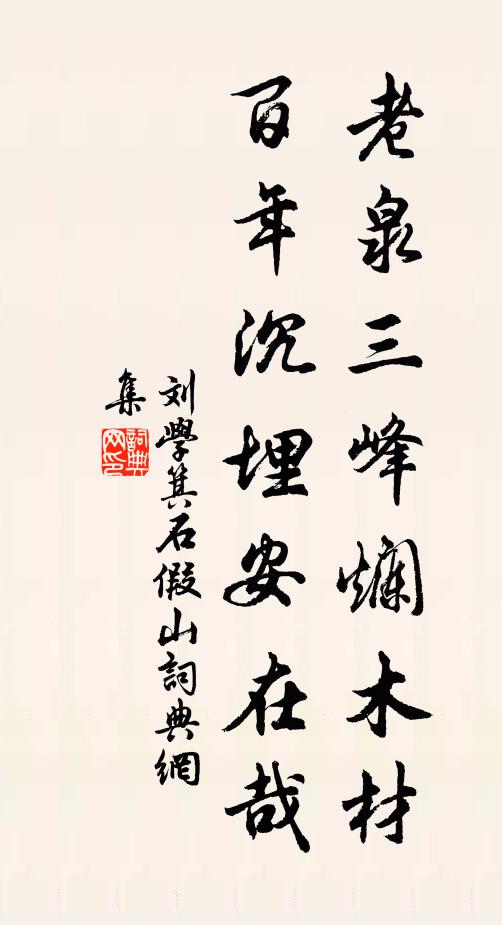 老泉三峰爛木材
百年沉埋安在哉
刘學箕石假山詞典網
集
詞典
网